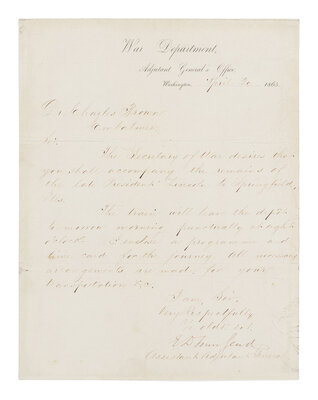 War Department,
Adjutant General's Office,
Washington, April 20 1865.
Dr. Charles Brown
Embalmer
Sir:
The Secretary of War desires that
you shall accompany the remains of
the late President Lincoln to Springfield,
Ills.
The train will leave the depot
to-morrow morning punctually at eight
o'clock. I enclose a programme and
time card for the journey. All necessary
arrangements are made for your
transportation &c.
I am, Sir,
Very Respectfully
Yr obdt Svt.
E D Townsend
Assistant Adjutant General